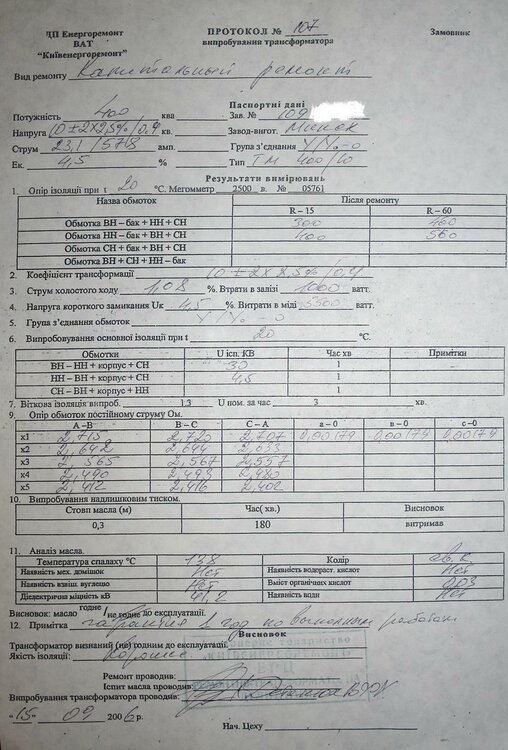 ДП Енергоремонт
ВАТ
"Київенергоремонт"
ПРОТОКОЛ № 107
випробування трансформатора
Замовник
Вид ремонту Капитальный ремонт
Паспортні дані
Потужність 400 ква Зав. № 109
Напруга 10±2х2,5%/0,4 кв. Завод-вигот. Минск
Струм 23,1/578 амп. Група з'єднання Y/Y₀-0
Ек. 4,5 % Тип ТМ 400/10
Результати вимірювань
1. Опір ізоляції при t 20 °С. Мегомметр 2500 в. № 05761
Назва обмоток Після ремонту
R – 15 R – 60
Обмотка ВН – бак + НН + СН 300 460
Обмотка НН – бак + ВН + СН 400 560
Обмотка СН + бак + ВН + СН
Обмотка ВН + СН + НН – бак
2. Коефіцієнт трансформації 10±2х2,5%/0,4
3. Струм холостого ходу 1,08 %. Втрати в залізі 1060 ватт.
4. Напруга короткого замикання Uк 4,5 %. Витрати в міді 5500 ватт.
5. Група з'єднання обмоток Y/Y₀-0
6. Випробовування основної ізоляції при t 20 °С.
Обмотки U ісп. КВ Час хв Примітки
ВН – НН + корпус + СН 30 1
НН – ВН + корпус + СН 4,5 1
СН – ВН + корпус + НН 1
7. Віткова ізоляція випроб. 1,3 U ном. за час 3 хв.
9. Опір обмоток постійному струму Ом.
А – В В – С С – А а – 0 в – 0 с – 0
х1 2,715 2,720 2,707 0,00179 0,00179 0,00179
х2 2,642 2,644 2,633
х3 2,565 2,567 2,557
х4 2,490 2,493 2,480
х5 2,412 2,416 2,402
10. Випробування надлишковим тиском.
Стовп масла (м) Час( хв.) Висновок
0,3 180 витримав
11. Аналіз масла.
Температура спалаху °С 138 Колір св. ж
Наявність мех. домішок Нет Наявність водораст. кислот Нет
Наявність взвіш. вуглецю Нет Вміст органічних кислот 0,03
Діелектрична міцність кВ 41,2 Наявність води Нет
Висновок: масло годно / не годно до експлуатації.
12. Примітка гарантия 1 год по выполненым работам
Висновок
Трансформатор визнаний (не) годним до експлуатації.
Якість ізоляції: хорошие
Ремонт проводив:
Іспит масла проводив:
Випробування трансформатора проводив:
"15" 09 2006 р.
Нач. Цеху